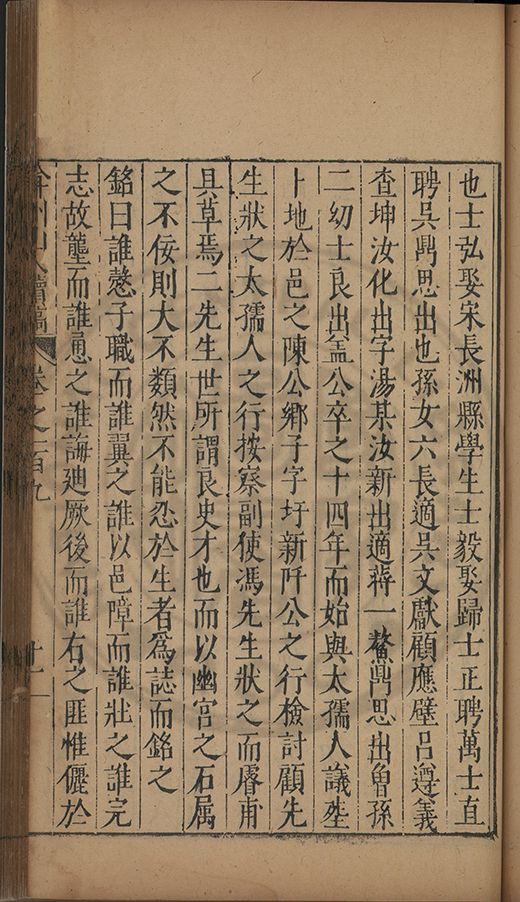 也士弘娶宋長洲縣學生士毅娶歸士正聘萬士直
聘吳鼎思出也孫女六長適吳文獻顧應璧呂遵義
查坤汝化出字湯某汝新出適蔣一鰲鼎思出曾孫
二幼士良出盖公卒之十四年而始與太孺人議塟
卜地於邑之陳公鄉子字圩新阡公之行檢討顧先
生狀之太孺人之行按察副使馮先生狀之而睿甫
具草焉二先生世所謂良史才也而以幽宮之石属
之不佞則大不類然不能忍於生者為誌而銘之
銘曰誰憗子職而誰翼之誰以邑障而誰壯之誰完
志故壟而誰恿之誰誨廸厥後而誰右之匪惟儷於
弇州山人續稿 卷之一百九 十一